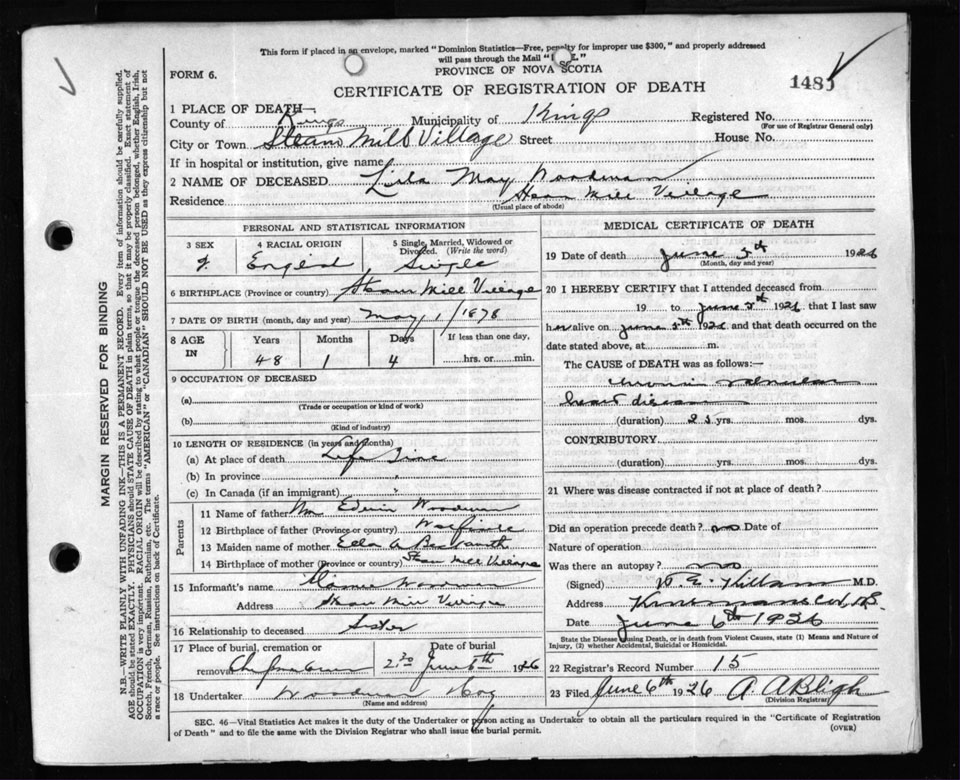 This form if placed in an envelope, marked "Dominion Statistics—Free, penalty for improper use $300," and properly addressed
will pass through the Mail "
PROVINCE OF NOVA SCOTIA
FORM 6.
CERTIFICATE OF REGISTRATION OF DEATH
1485
1 PLACE OF DEATH—
County of Kings Municipality of Kings Registered No.
(For use of Registrar General only)
City or Town Steam Mill Village Street House No.
If in hospital or institution, give name
2 NAME OF DECEASED Lila May Woodman
Residence Steam Mill Village
(Usual place of abode)
PERSONAL AND STATISTICAL INFORMATION
3 SEX 4 RACIAL ORIGIN 5 Single, Married, Widowed or Divorced. (Write the word)
f. English Single
6 BIRTHPLACE (Province or country) Steam Mill Village
7 DATE OF BIRTH (month, day and year) May 1/1878
8 AGE IN Years Months Days If less than one day,
48 1 4 hrs. or min.
9 OCCUPATION OF DECEASED
(a)
(Trade or occupation or kind of work)
(b)
(Kind of industry)
10 LENGTH OF RESIDENCE (in years and months)
(a) At place of death Life Time
(b) In province "
(c) In Canada (if an immigrant) "
Parents
11 Name of father Wm Edwin Woodman
12 Birthplace of father (Province or country)
13 Maiden name of mother Ella A
14 Birthplace of mother (Province or country) Steam Mill Village
15 Informant's name Woodman
Address Steam Mill Village
16 Relationship to deceased Sister
17 Place of burial, cremation or removal Date of burial
2.30 June 6th 1926
18 Undertaker Woodman
(Name and address)
MEDICAL CERTIFICATE OF DEATH
19 Date of death June 5th 1926
(Month, day and year)
20 I HEREBY CERTIFY that I attended deceased from
19 to June 5th 1926, that I last saw
her alive on June 5th 1926 and that death occurred on the
date stated above, at m.
The CAUSE of DEATH was as follows:—
Chronic valvular
heart disease
(duration) 25 yrs. mos. dys.
CONTRIBUTORY
(duration) yrs. mos. dys.
21 Where was disease contracted if not at place of death?
Did an operation precede death? no Date of
Nature of operation
Was there an autopsy? no
(Signed) W. E. M.D.
Address N.S.
Date June 6th 1926
State the Disease causing Death, or in death from Violent Causes, state (1) Means and Nature of
Injury, (2) whether Accidental, Suicidal or Homicidal.
22 Registrar's Record Number 15
23 Filed June 6th 1926 A. A Bligh
(Division Registrar)
SEC. 46—Vital Statistics Act makes it the duty of the Undertaker or person acting as Undertaker to obtain all the particulars required in the "Certificate of Registration
of Death" and to file the same with the Division Registrar who shall issue the burial permit.
(OVER)
MARGIN RESERVED FOR BINDING
N.B.—WRITE PLAINLY WITH UNFADING INK—THIS IS A PERMANENT RECORD. Every item of information should be carefully supplied.
AGE should be stated EXACTLY. PHYSICIANS should STATE CAUSE OF DEATH in plain terms, so that it may be properly classified. Exact statement of
OCCUPATION is very important. RACIAL ORIGIN will be described by stating to what people or tongue the deceased person belonged, whether English, Irish,
Scotch, French, German, Russian, Ruthenian, etc. The terms "AMERICAN" or "CANADIAN" SHOULD NOT BE USED as they express citizenship but not
a race or people. See instructions on back of Certificate.